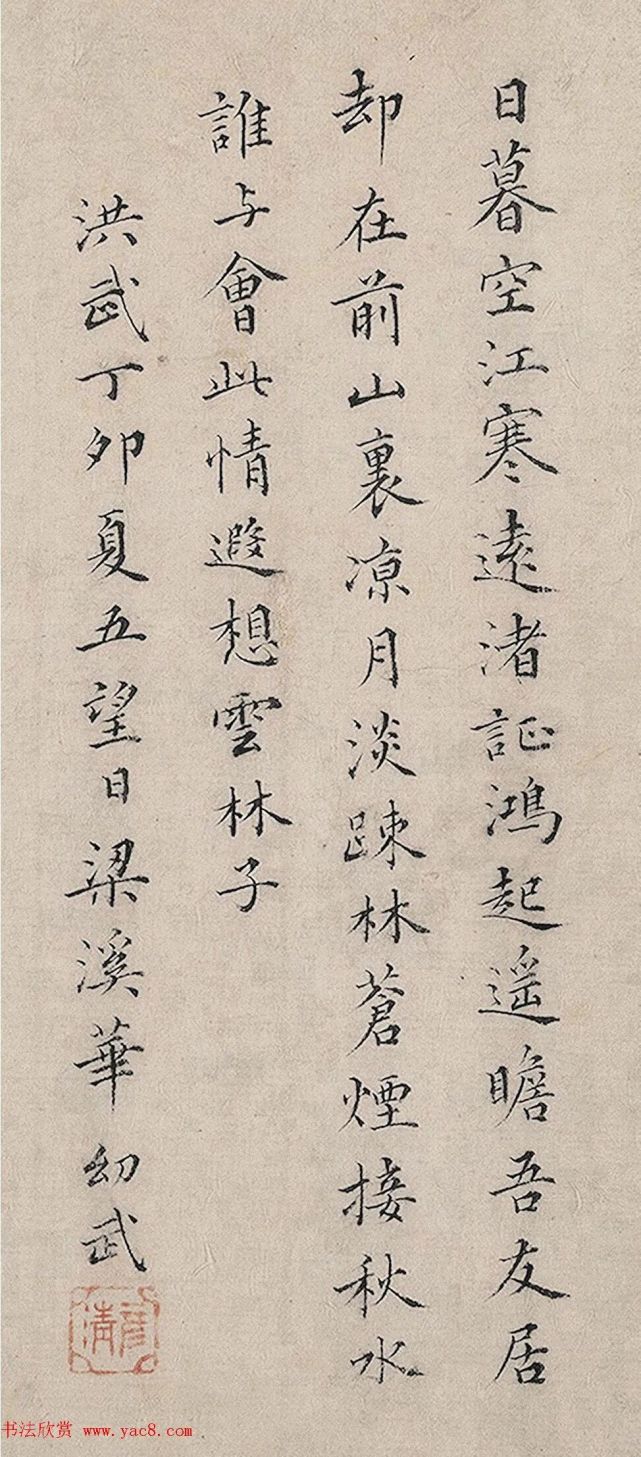 日暮空江寒遠渚証鴻起遥瞻吾友居
却在前山裏凉月淡踈林蒼煙接秋水
誰与會此情遐想雲林子
洪武丁卯夏五望日梁溪華幼武
彦清
书法欣赏 www.yac8.com